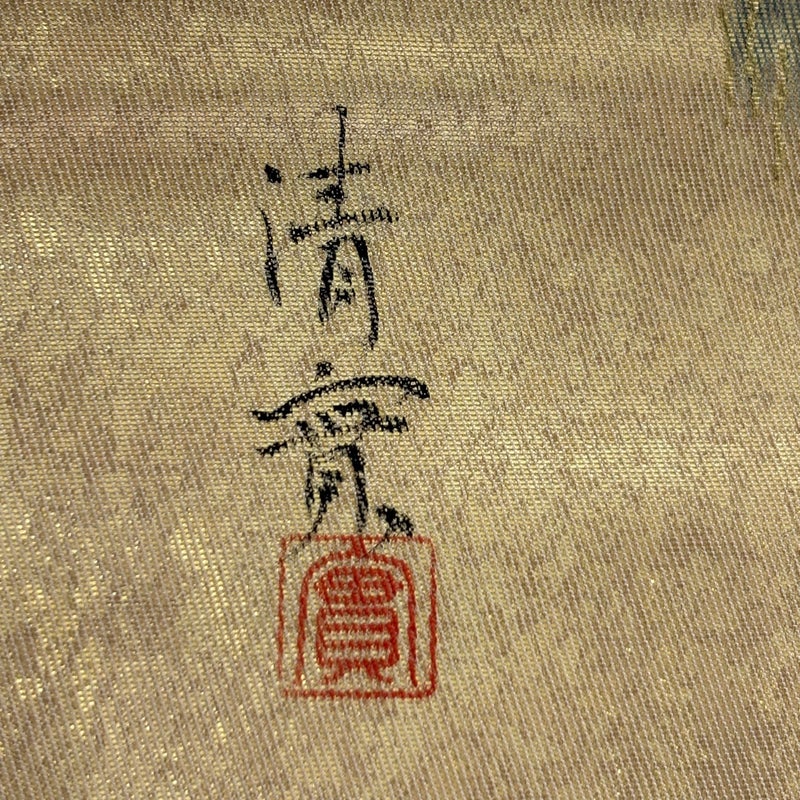 清
實
實